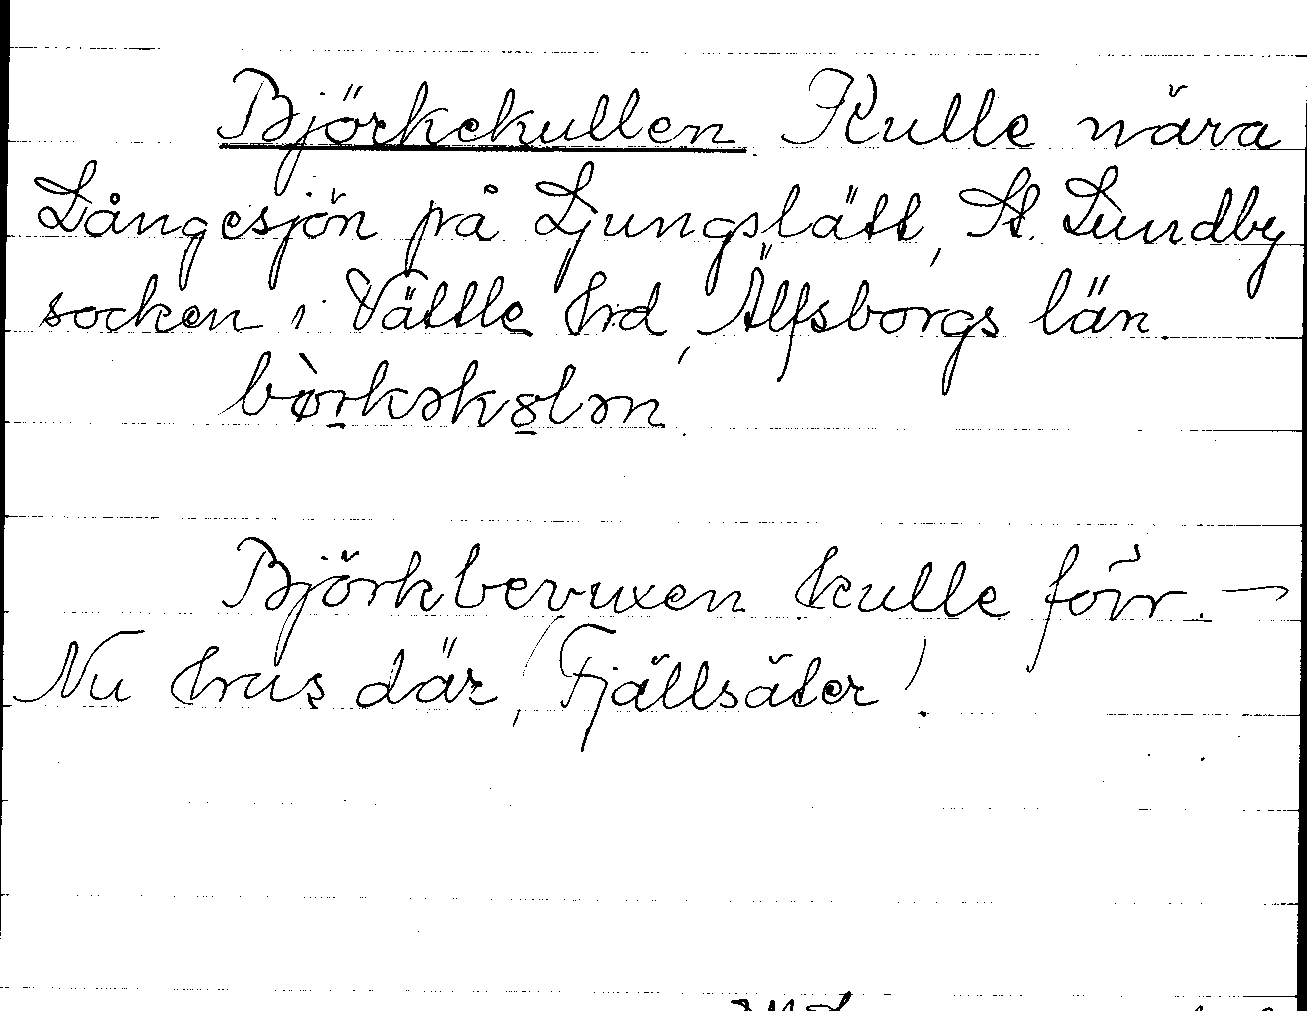 Björkekullen. Kulle nära
Långesjön på Ljungslätt, St. Lundby
socken i Vättle hrd, Älfsborgs län.
bòrkəkȣlən.
Björkbevuxen kulle förr. —
Nu hus där, (Fjällsäter).